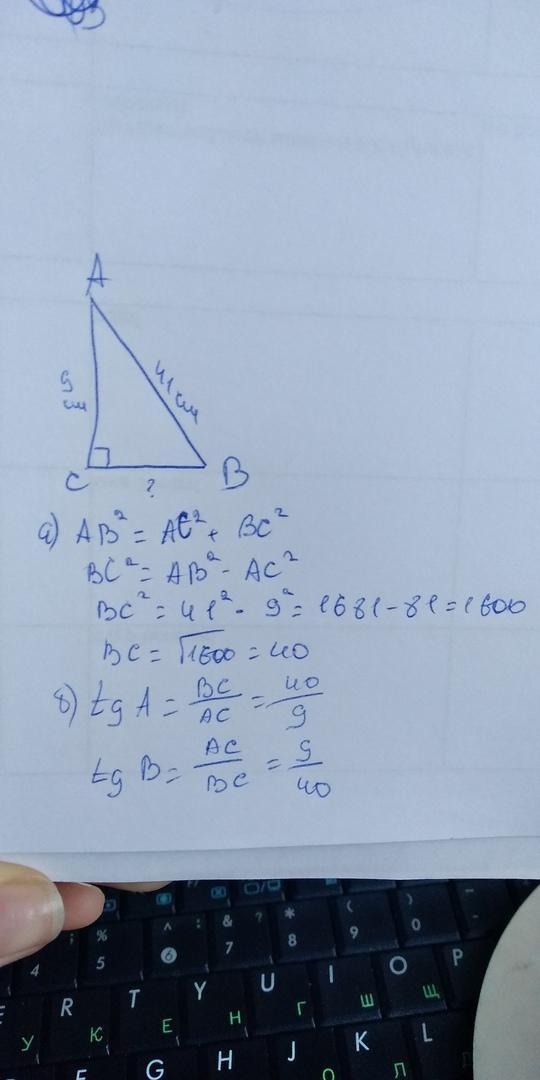 A
9 см
41 см
C
?
B
а) AB² = AC² + BC²
BC² = AB² - AC²
BC² = 41² - 9² = 1681 - 81 = 1600
BC = √1600 = 40
б) tg A = BC/AC = 40/9
tg B = AC/BC = 9/40
% ^ : & ? * ( ) -
4 5 6 7 8 9 0
E R T Y U I O P
У К Е Н Г Ш Щ
F G H J K L
О Л